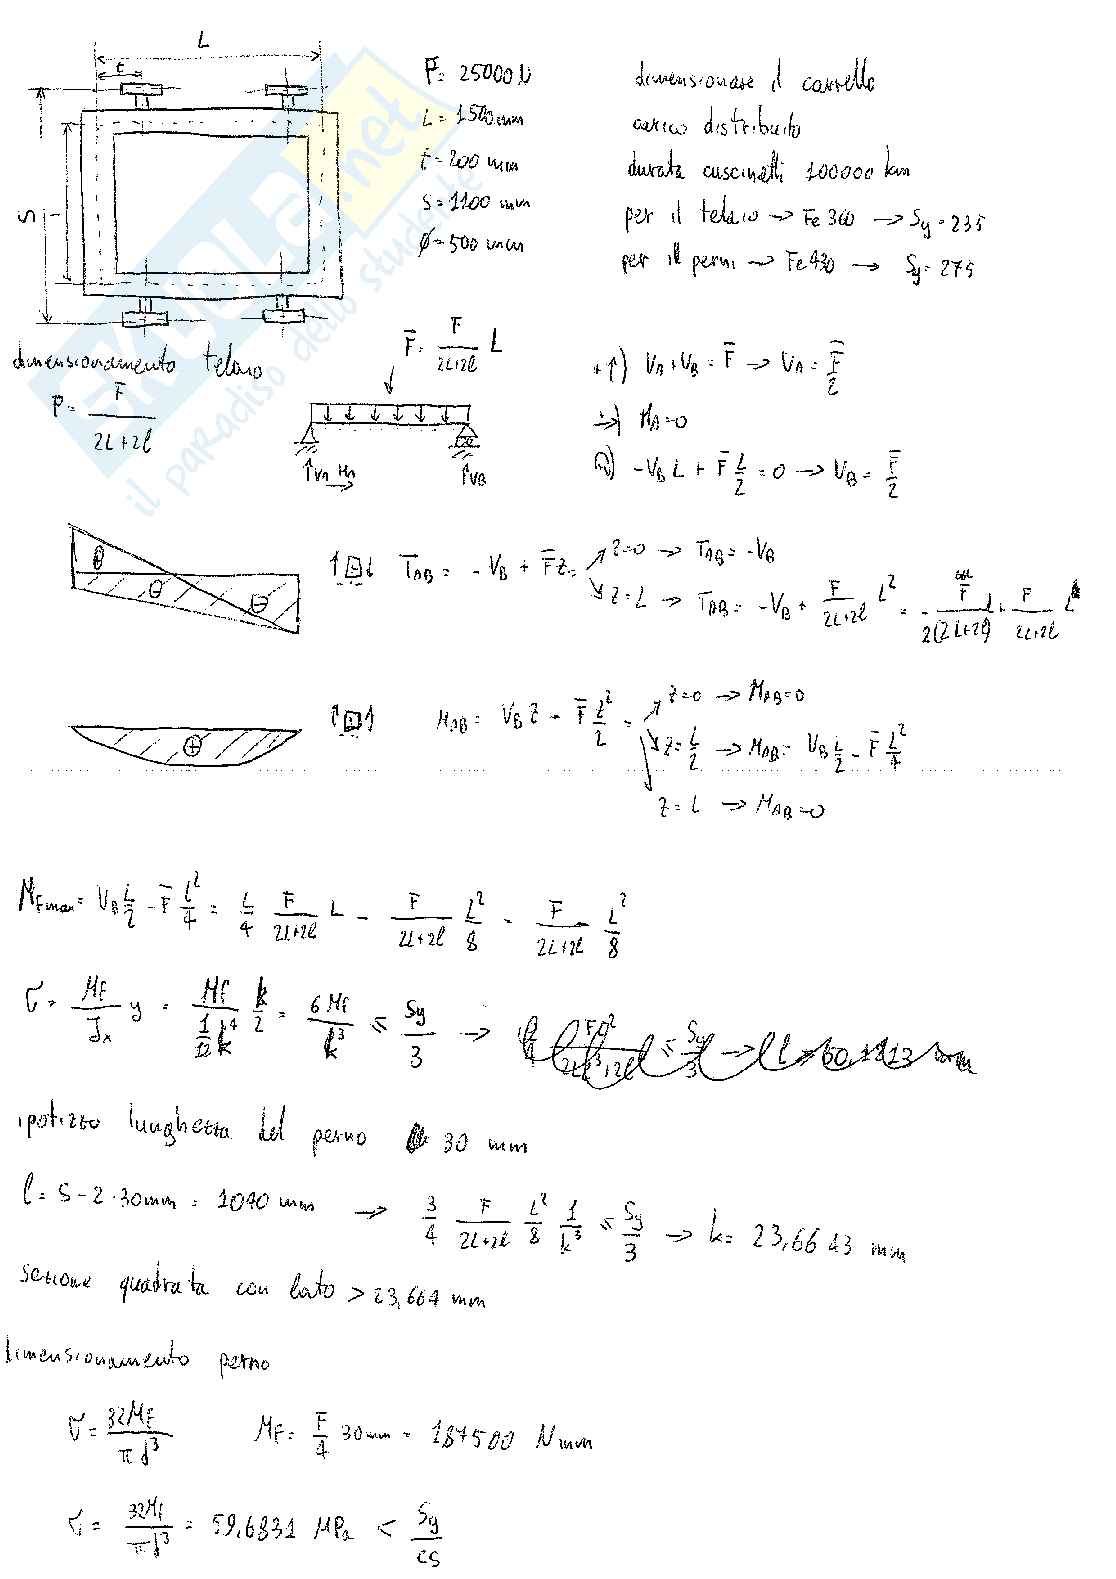 L
t
S
l
F = 25000 N
L = 1500 mm
t = 200 mm
s = 1100 mm
ϕ = 500 mm
dimensionare il carrello
carico distribuito
durata cuscinetti 100000 km
per il telaio → Fe 360 → Sy = 235
per il perni → Fe 430 → Sy = 275
SKUOLA.net
il paradiso dello studente
dimensionamento telaio
P = F/(2L+2l)
F̅ = F/(2L+2l) L
VA HA VB
+↑) VA + VB = F̅ → VA = F̅/2
→) HA = 0
-VB L + F̅ L/2 = 0 → VB = F̅/2
TAB = -VB + F̅ z =
z=0 → TAB = -VB
z=L → TAB = -VB + F/(2L+2l) L² =
MAB = VB z - F̅ L²/2 =
z=0 → MAB=0
z=L/2 → MAB = VB L/2 - F̅ L²/4
z = L → MAB=0
MFmax = VB L/2 - F̅ L²/4 = L/4 F/(2L+2l) L - F/(2L+2l) L²/8 = F/(2L+2l) L²/8
σ = MF/Jx y = MF/(1/12 k⁴) k/2 = 6 MF/k³ ≤ Sy/3 →
ipotizzo lunghezza del perno 30 mm
l = S - 2 · 30mm = 1040 mm → 3/4 F/(2L+2l) L²/8 1/k³ ≤ Sy/3 → k = 23,6643 mm
sezione quadrata con lato > 23,664 mm
dimensionamento perno
σ = 32MF/πd³ MF = F/4 30mm = 187500 Nmm
σ = 32MF/πd³ = 59,6831 MPa < Sy/cs